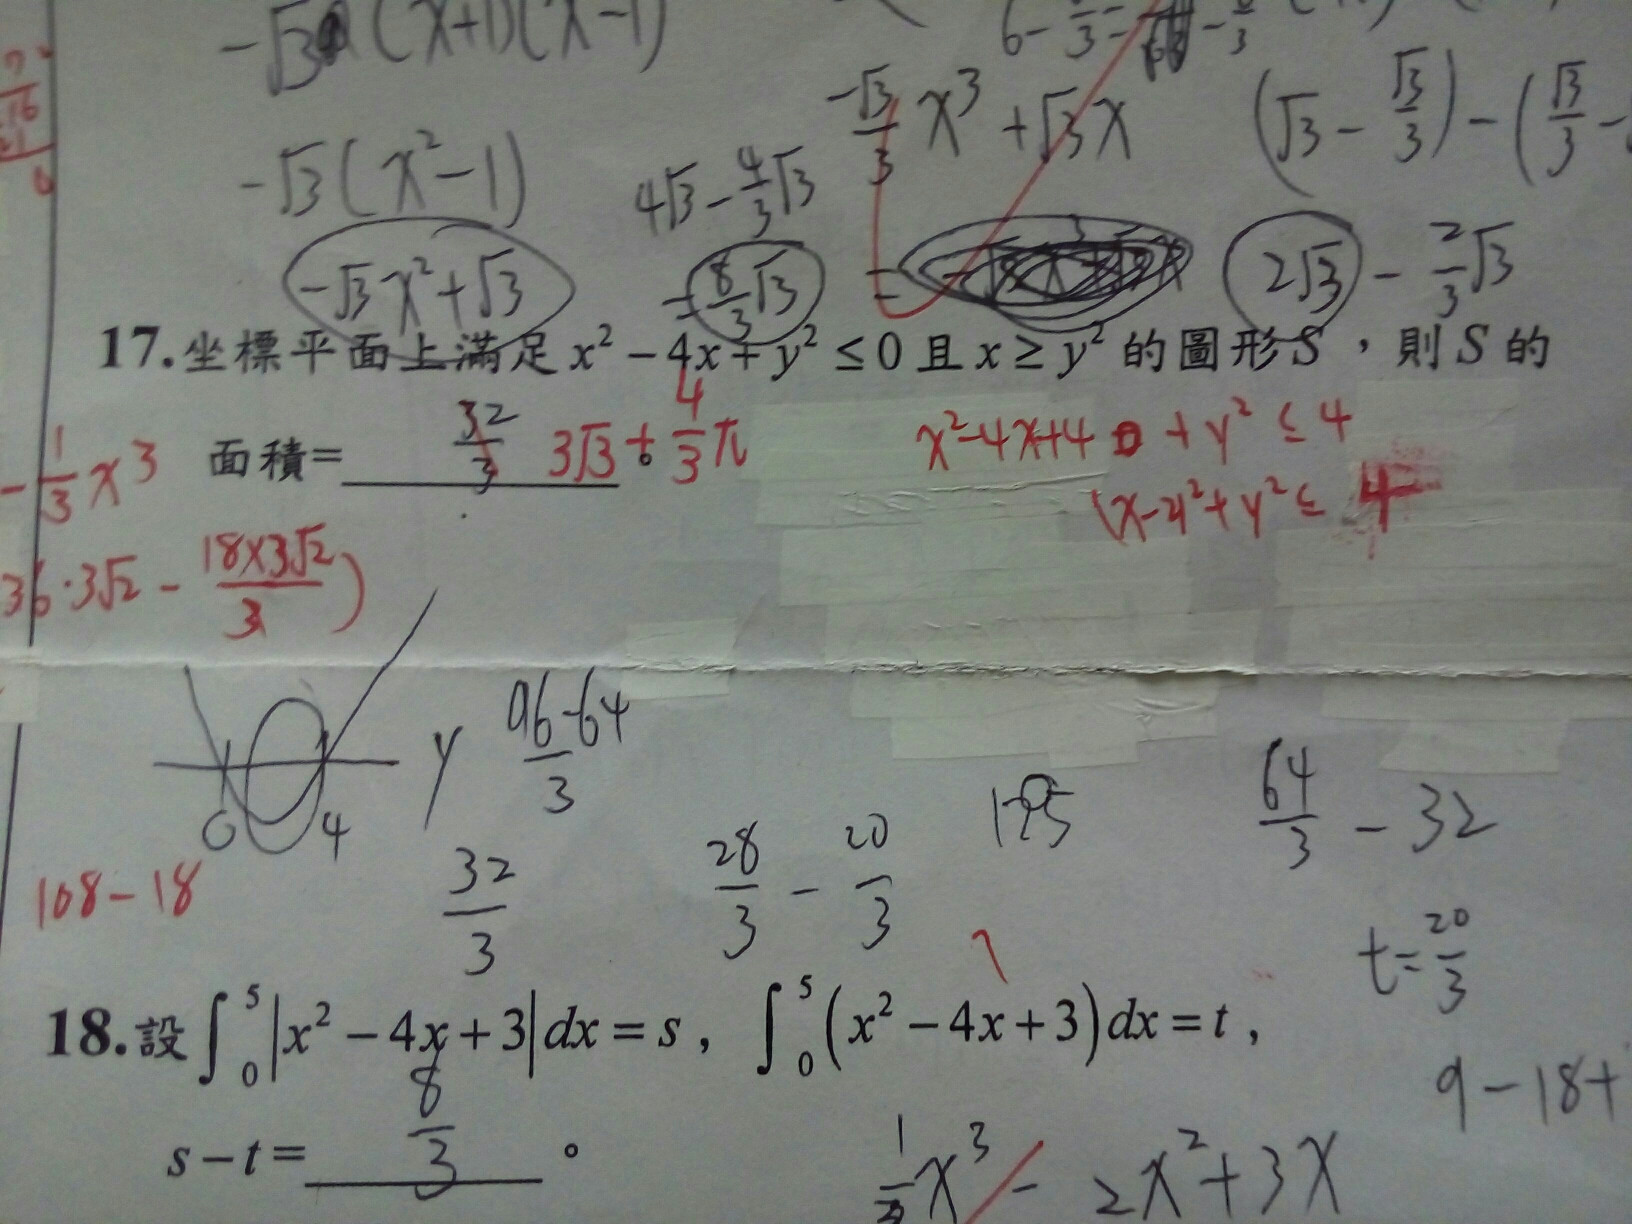 -√3 (x+1)(x-1)
6-
-√3/3 x³ + √3x
(√3 - √3/3) - (√3/3 -
-√3(x²-1)
4√3 - 4/3√3
-√3x²+√3
= 8/3√3
=
2√3 - 2/3√3
17.坐標平面上滿足 x² - 4x + y² ≤ 0 且 x ≥ y² 的圖形 S ，則 S 的
面積= 32/3 。
3√3 + 4/3π
x²-4x+4 + y² ≤ 4
(x-2)²+y² ≤ 4
-1/3x³
36·3√2 - 18×3√2/3)
0 4 y
96-64/3
32/3
28/3 - 20/3
64/3 - 32
t=20/3
108-18
18.設 ∫₀⁵|x² - 4x + 3|dx = s， ∫₀⁵(x² - 4x + 3)dx = t，
9-18+
s - t = 8/3 。
x³ - 2x²+3x